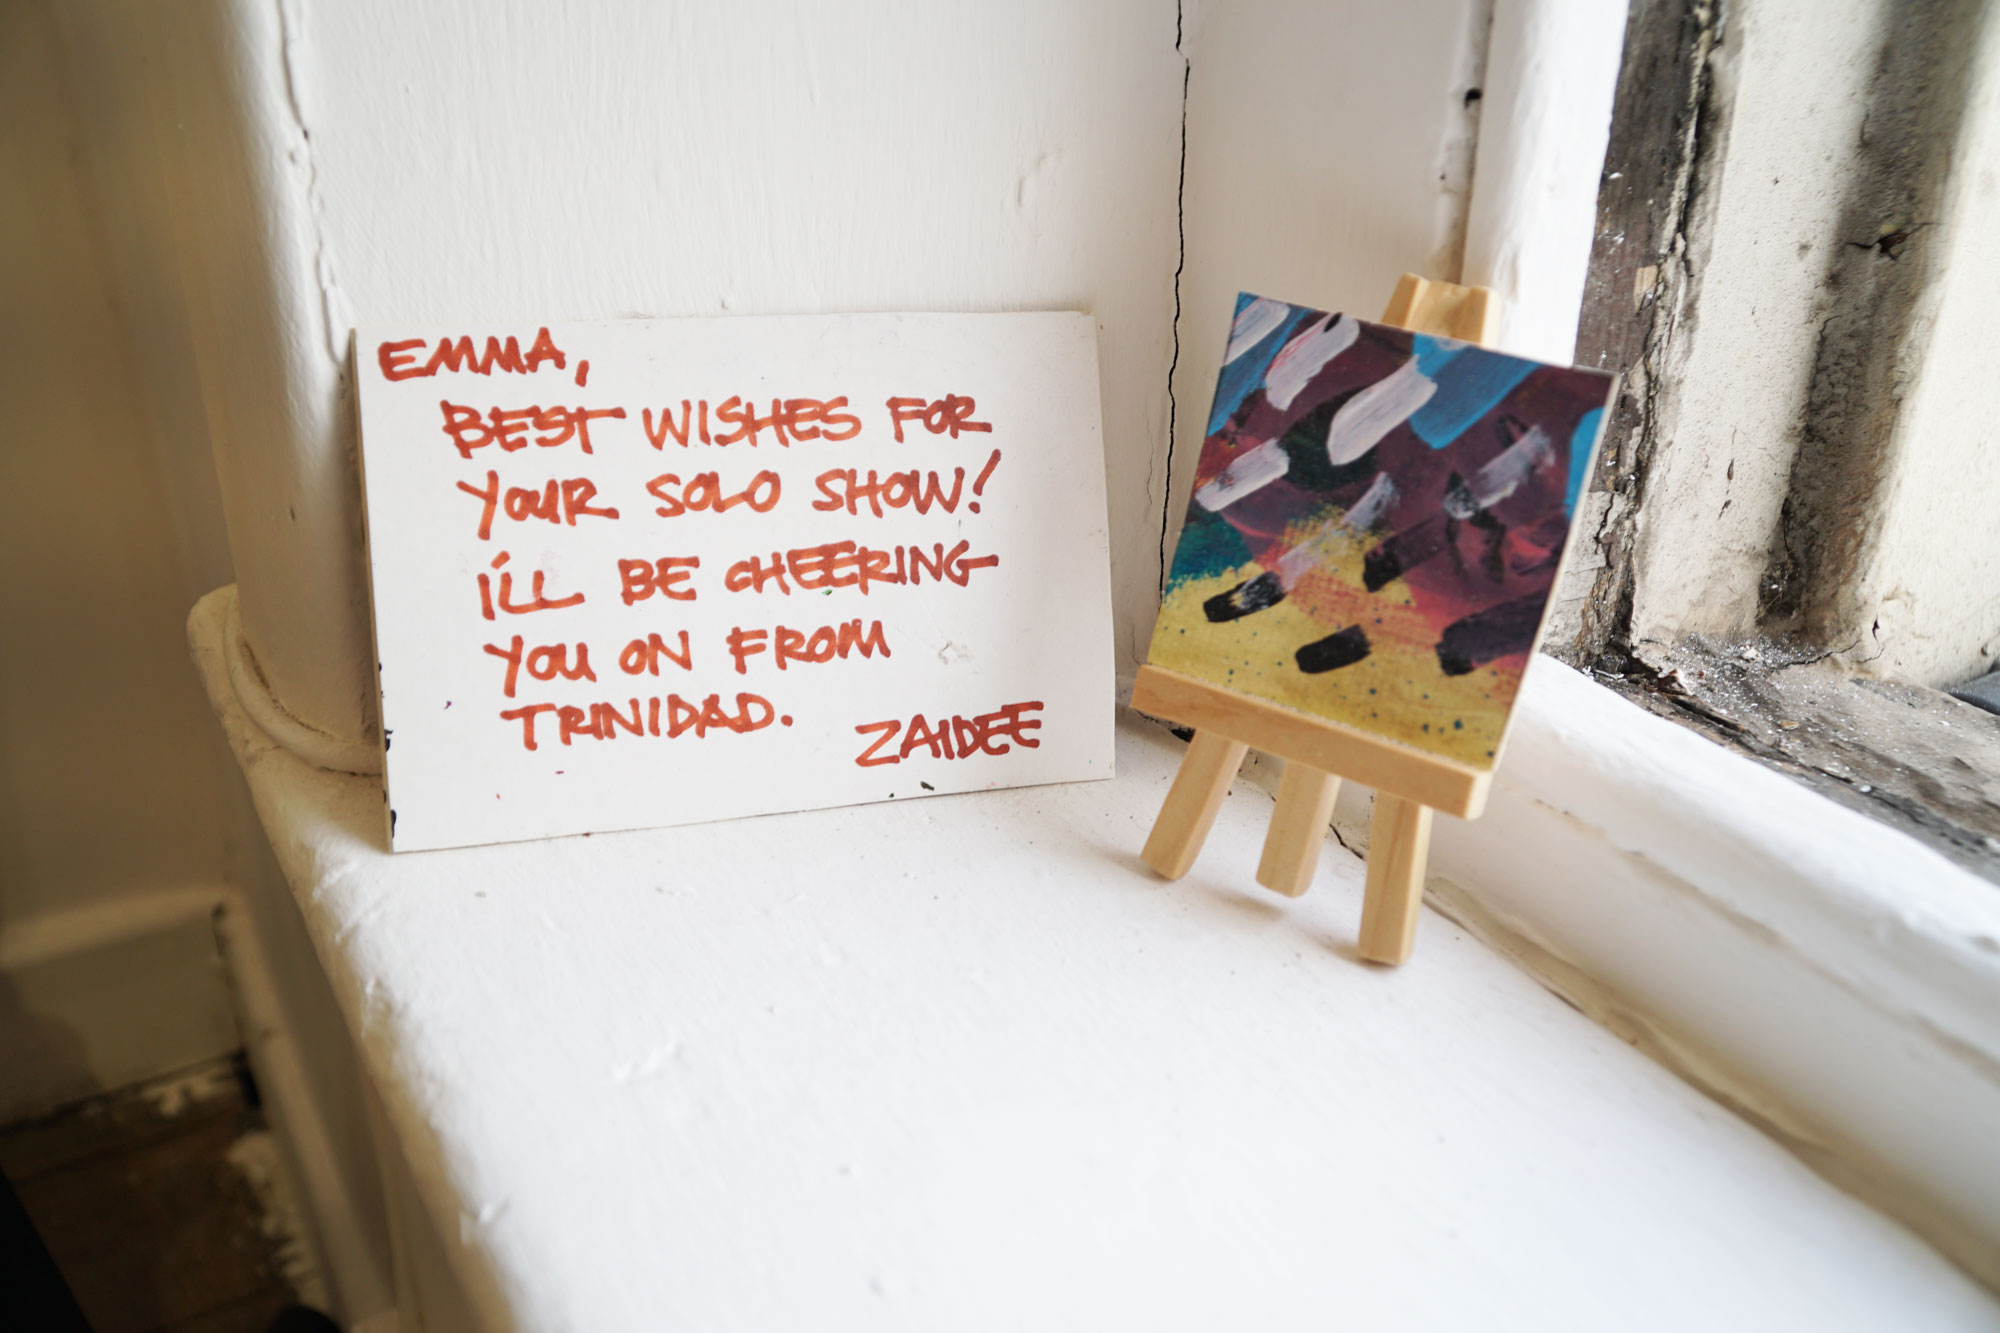 EMMA,
BEST WISHES FOR
YOUR SOLO SHOW!
I'LL BE CHEERING
YOU ON FROM
TRINIDAD.
ZAIDEE